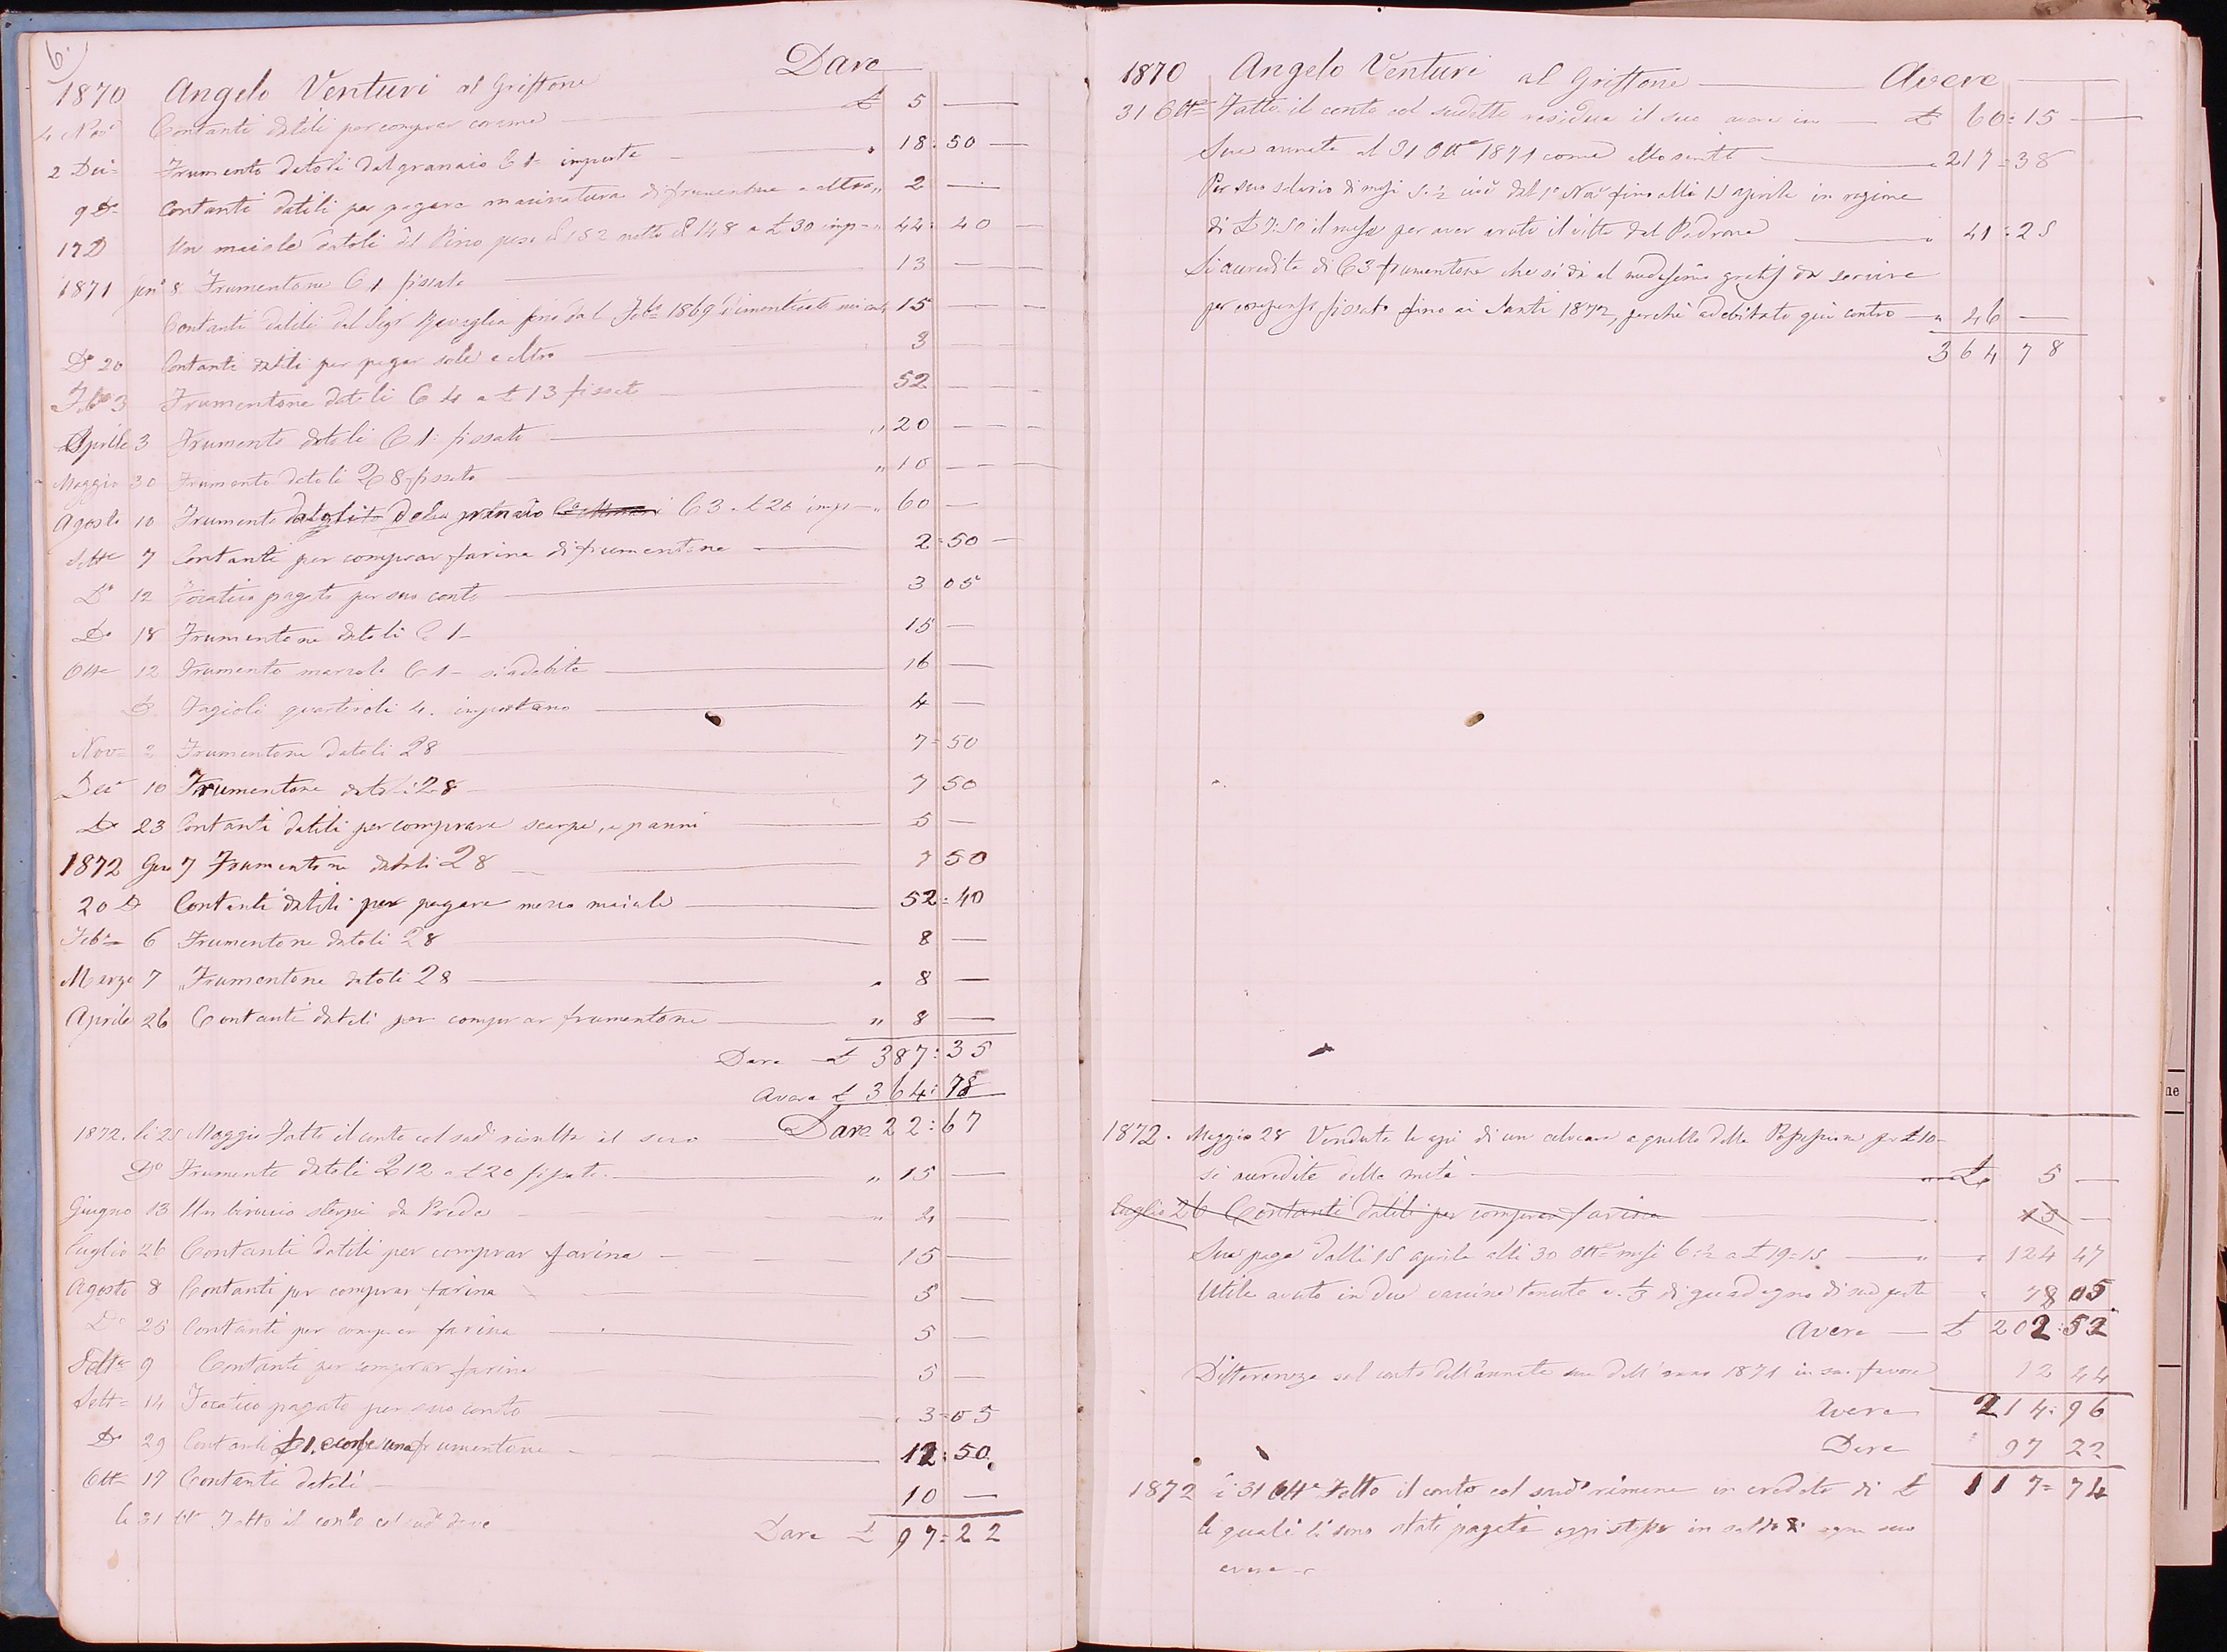 6.
1870 Angelo Venturi al Griffone Dare
4 Nov.e Contanti datili per comprar corame £ 5 —
2 Dec= Frumento datoli dal granaio C 1= importa " 18:50
9 D.o Contanti datili per pagare macinatura di frumentone e altro " 2 —
17 D Un maiale datoli del Pino peso ℔ 182 netto ℔ 148 a £ 30 imp= " 42:40
1871 gen.o 8 Frumentone C 1 fissato 13 —
Contanti datili dal Sig.r fino dal Feb.o 1869 dimenticato nei conti 15 —
D.o 20 Contanti datili per pagar sale e altro 3 —
Feb.o 3 Frumentone datoli C 4 a £ 13 fissato 52 —
Aprile 3 Frumento datoli C 1= fissato " 20 — —
Maggio 30 Frumento datoli 2 8 fissato " 10 — —
Agosto 10 Frumento granaio C 3 a £ 20 imp— " 60 —
Sett.e 7 Contanti per comprar farina di frumentone 2=50
D.o 12 Focatico pagato per suo conto 3 05
D.o 18 Frumentone datoli C 1— 15 —
Ott.e 12 Frumento marzolo C 1— si adebita 16 —
D. Fagioli quartiroli 4. importano 4 —
Nov= 2 Frumentone datoli 2 8 7=50
Dec.e 10 Frumentone datoli 2 8 7 50
D.o 23 Contanti datili per comprare scarpe, e panni 5 —
1872 Gen 7 Frumentone datoli 2 8 7 50
20 D Contanti datili per pagare mezzo maiale 52=40
Feb.o 6 Frumentone datoli 2 8 8 —
Marzo 7 Frumentone datoli 2 8 " 8 —
Aprile 26 Contanti datili per comprar frumentone " 8 —
Dare £ 387:35
Avere £ 364:78
1872. li 25 Maggio Fatto il conto col sud.o risulta il suo Dare 22:67
D.o Frumento datoli 2 12 a £ 20 fissato. " 15 —
Giugno 13 Un biroccio sterpi da Preda " 2 —
Luglio 26 Contanti datili per comprar farina 15 —
Agosto 8 Contanti per comprar farina 5 —
D.o 25 Contanti per comprar farina 5 —
Sett.e 9 Contanti per comprar farina 5 —
Sett= 14 Focatico pagato per suo conto 3=05
D.o 29 Contanti frumentone 12:50.
Ott= 17 Contanti datili 10 —
li 31 Ott.e Fatto il conto col sud.o deve Dare £ 97=22
1870 Angelo Venturi al Griffone Avere
31 Ott.e Fatto il conto col sudetto residua il suo avere in £ 60:15
Sua annata al 31 Ott.e 1871 come allo scritto " 217=38
Per suo salario di mesi 5:½ cioè dal 1.o Nov.e fino alli 15 aprile in ragione
di £ 7:50 il mese per aver avuto il vitto dal Padrone " 41:25
Si accredita di C 3 frumentone che si dà al medesimo gratis da servire
per compenso fissato fino ai Santi 1872, perchè adebitato qui contro " 46 —
364 78
1872. Maggio 28 Vendute le api di un alveare a quello della Possessione per £ 10—
si accredita della metà £ 5 —
Luglio 26 Contanti datili per comprar farina 15 —
Sua paga dalli 15 aprile alli 30 Ott.e mesi 6:½ a £ 19=15 " 124 47
Utile avuto in due vaccine tenute a ⅓ di guadagno di sua parte 78 05
Avere £ 202:52
Differenza sul conto dell'annata sua dell'anno 1871 in suo favore 12 44
Avere 214:96
Dare 97 22
1872 i 31 Ott.e Fatto il conto col sud.o rimane in credito di £ 117=74
le quali li sono state pagate oggi stesso in saldo di ogni suo
avere—